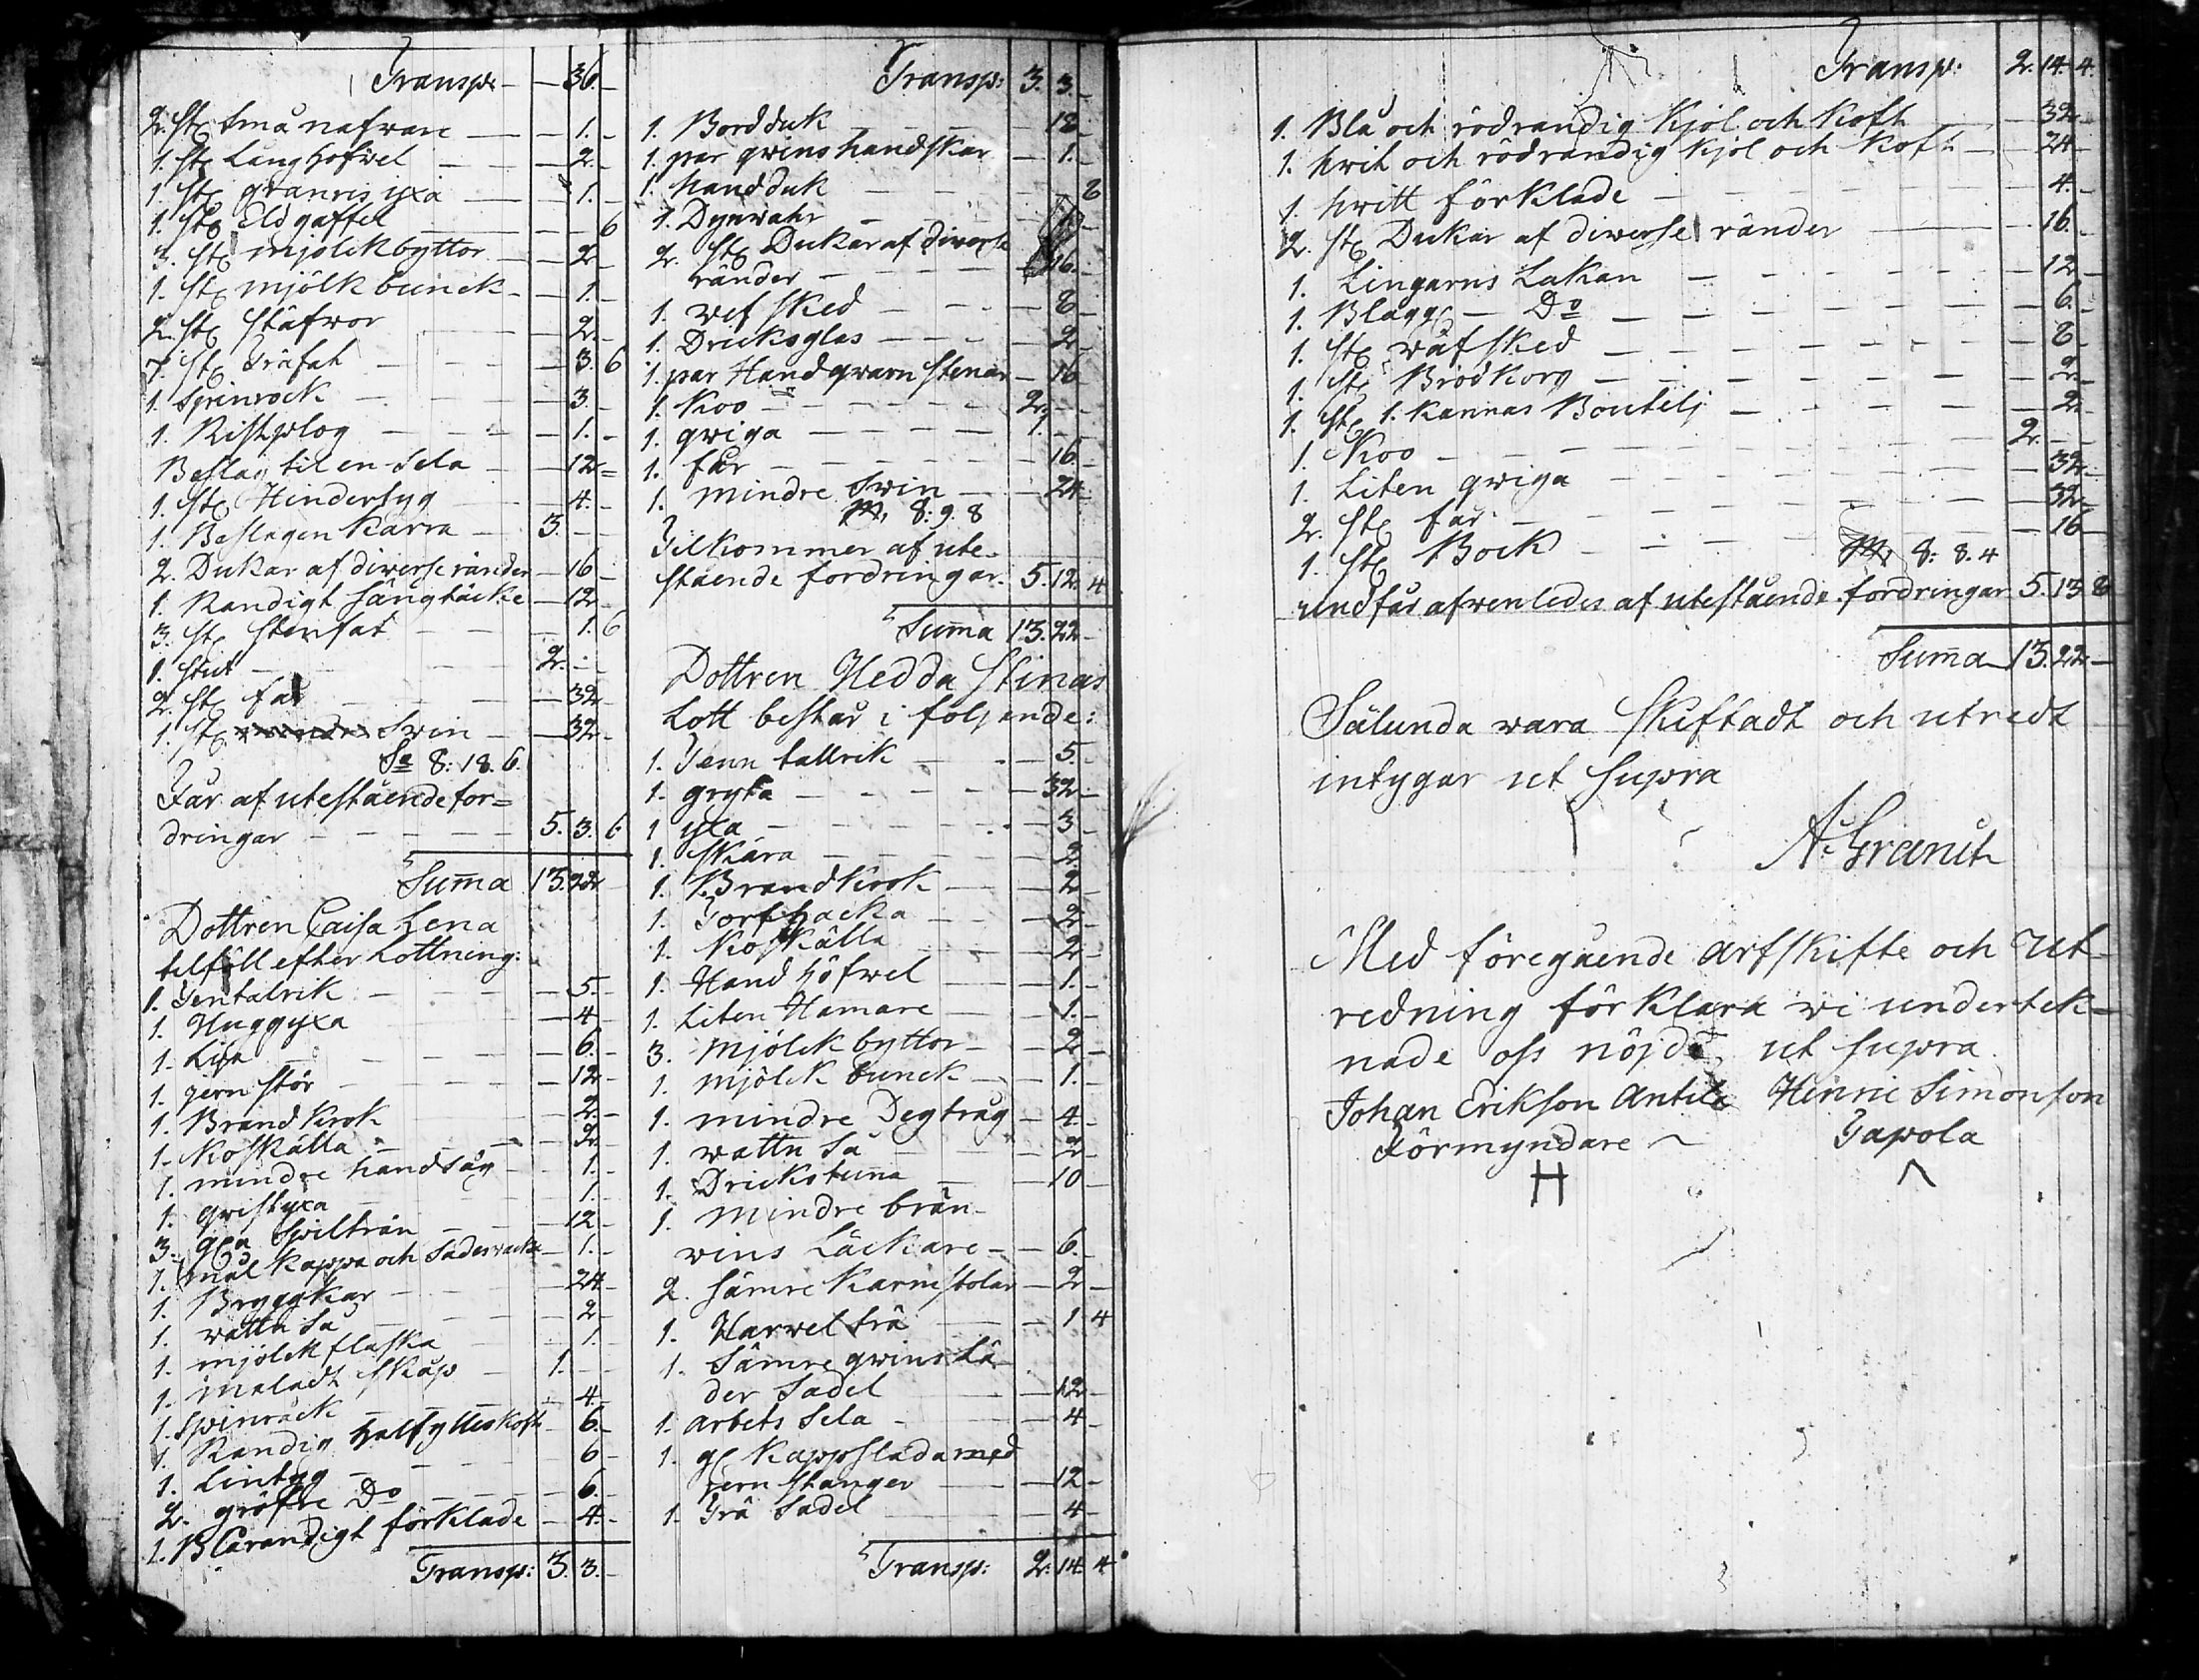 Transp: — 36. —
2. st små nafrare — 1. —
1. st Lång höfvel — 2. —
1. st granris yxa — 1. —
1. st Eldgaffel — 6
3. st mjölckbyttor — 2 —
1. st mjölk bunck — 1. —
2. st stäfvor — 2. —
7. st Träfat — 3. 6
1. Spinrock — 3. —
1. Ristplog — 1. —
Beslag til en Sela — 12 —
1. st Hindertyg — 4. —
1. Beslagen Kärra — 3. — —
2. Dukar af diverse ränder — 16 —
1. Randigt Sängtäcke — 12 —
3. st stenfat — 1. 6
1. Stut — 2. — —
2. st får — 32 —
1. st Swin — 32 —
Sa 8: 18. 6.
Får af utestående for=
dringar — 5. 3. 6
Summa 13. 22 —
Dottren Caisa Lena
tilföll efter Lottning:
1. Jentalrik — 5. —
1. Huggyxa — 4 —
1. Lija — 6. —
1. jern stör — 12 —
1. Brand Krok — 2. —
1. Koskälla — 2. —
1. mindre handsåg — 1. —
1. qvistyxa — 1. —
3. Spiltrån — 12 —
1. mål Kappa och Sädes — 1. —
1. Bryggkar — 24 —
1. vattn Så — 2 —
1. mjölck flaska — 1. —
1. maladt skåp — 1. — —
1. Spinrock — 4. —
1. Randig halfylleskoft — 6. —
1. Lintyg — 6 —
2. gröfre Do — 6. —
1. Blårandigt förklade — 4. —
Transp: 3. 3. —
Transp: 3. 3. —
1. Bordduk — 18 —
1. par qvins handskar — 1. —
1. handduk — 8
1. Dynvahr —
2. st Dukar af diverse
ränder — 16. —
1. vef sked — 8 —
1. Dricksglas — 2 —
1. par Handqvarn stenar — 16
1. Koo — 2. — —
1. qviga — 1. —
1. får — 16. —
1. mindre Swin — 24.
8: 9. 8
Tilkommer af ute-
stående fordringar. 5. 12. 4
Summa 13. 22 —
Dottren Hedda Stinas
Lott består i följande:
1. Jenn tallrik — 5. —
1. gryta — 32 —
1 yxa — 3 —
1. skära — 2.
1. Brandkrok — 2 —
1. Torfhacka — 2 —
1. Koskälla — 2 —
1. Hand höfvel — 1. —
1. Liten Hamare — 1. —
3. mjölck byttor — 2 —
1. mjölck bunck — 1. —
1. mindre Degtråg — 4. —
1. vattn Så — 2 —
1. Drickstunna — 10 —
1. mindre brän-
vins Läckare — 6. —
2. sämre Karmstolar — 2 —
1. Harvel trä — 1 4
1. Sämre qvins Lä-
der Sadel — 12 —
1. arbets Sela — 4 —
1. gl Kappsläda med
jern stänger — 12 —
1. Trä Sadel — 4 —
Transp: 2. 14. 4
Transp: 2. 14. 4.
1. Blå och rödrandig Kjol och Koft — 32 —
1. hvit och rödrandig kjol och Koft — 24 —
1. hvitt förklade — 4. —
2. st Dukar af diverse ränder — 16. —
1. Lingarns Lakan — 12 —
1. Blågg — Do — 6. —
1. st väfsked — 8 —
1. st Brödkorg — 2. —
1. st 1. Kannas Boutelj — 2 —
1. Koo — 2. — —
1. Liten qviga — 32 —
2. st får — 32 —
1. st Bock — 16 —
8: 8. 4
undfår afvenledes af utestående fordringar 5. 13. 8
Summa 13. 22 —
Sålunda vara Skiftadt och utredt
intygar ut supra
A. Granit
Med föregående arfskifte och Ut-
redning förklara vi underteck=
nade oss nöjde ut supra.
Johan Erikson Antila Hinric Simonson
Förmyndare Tapola
H ^